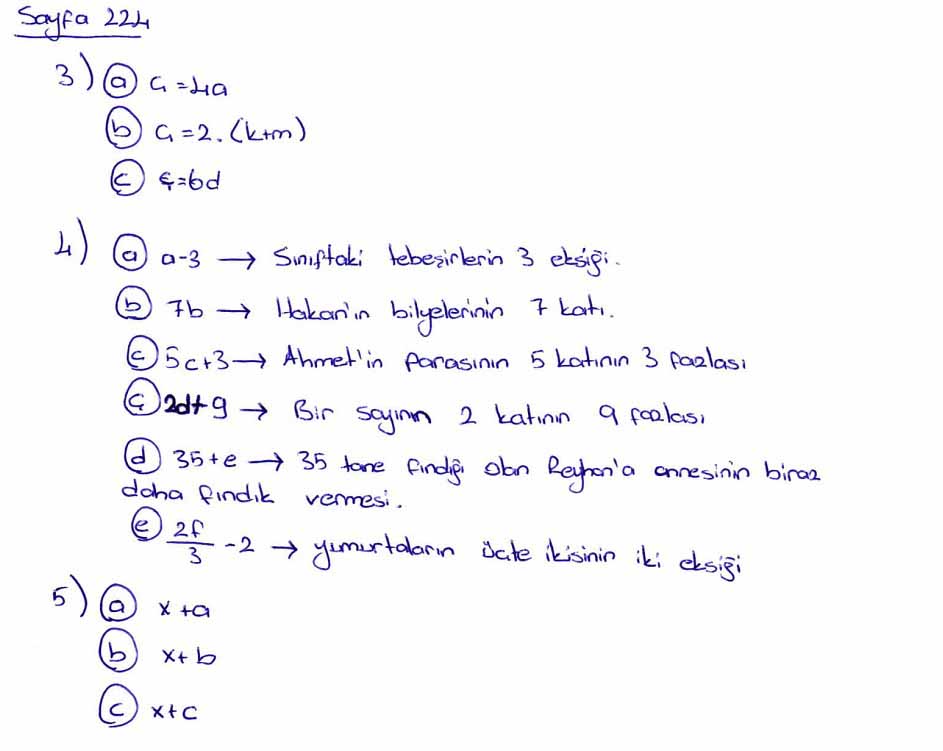 Sayfa 224
3) a Ç=4a
b Ç=2.(k+m)
c Ç=6d
4) a a-3 → Sınıftaki tebeşirlerin 3 eksiği.
b 7b → Hakan'ın bilyelerinin 7 katı.
c 5c+3 → Ahmet'in parasının 5 katının 3 fazlası
ç 2d+9 → Bir sayının 2 katının 9 fazlası
d 35+e → 35 tane fındığı olan Reyhan'a annesinin biraz
daha fındık vermesi.
e 2f/3 -2 → yumurtaların üçte ikisinin iki eksiği
5) a x+a
b x+b
c x+c